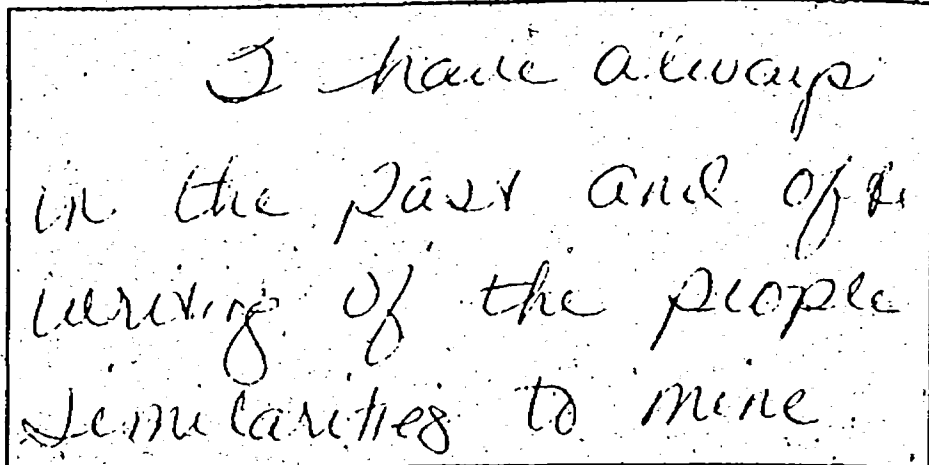 I have always
in the past and ofte
writing of the people
similarities to mine.